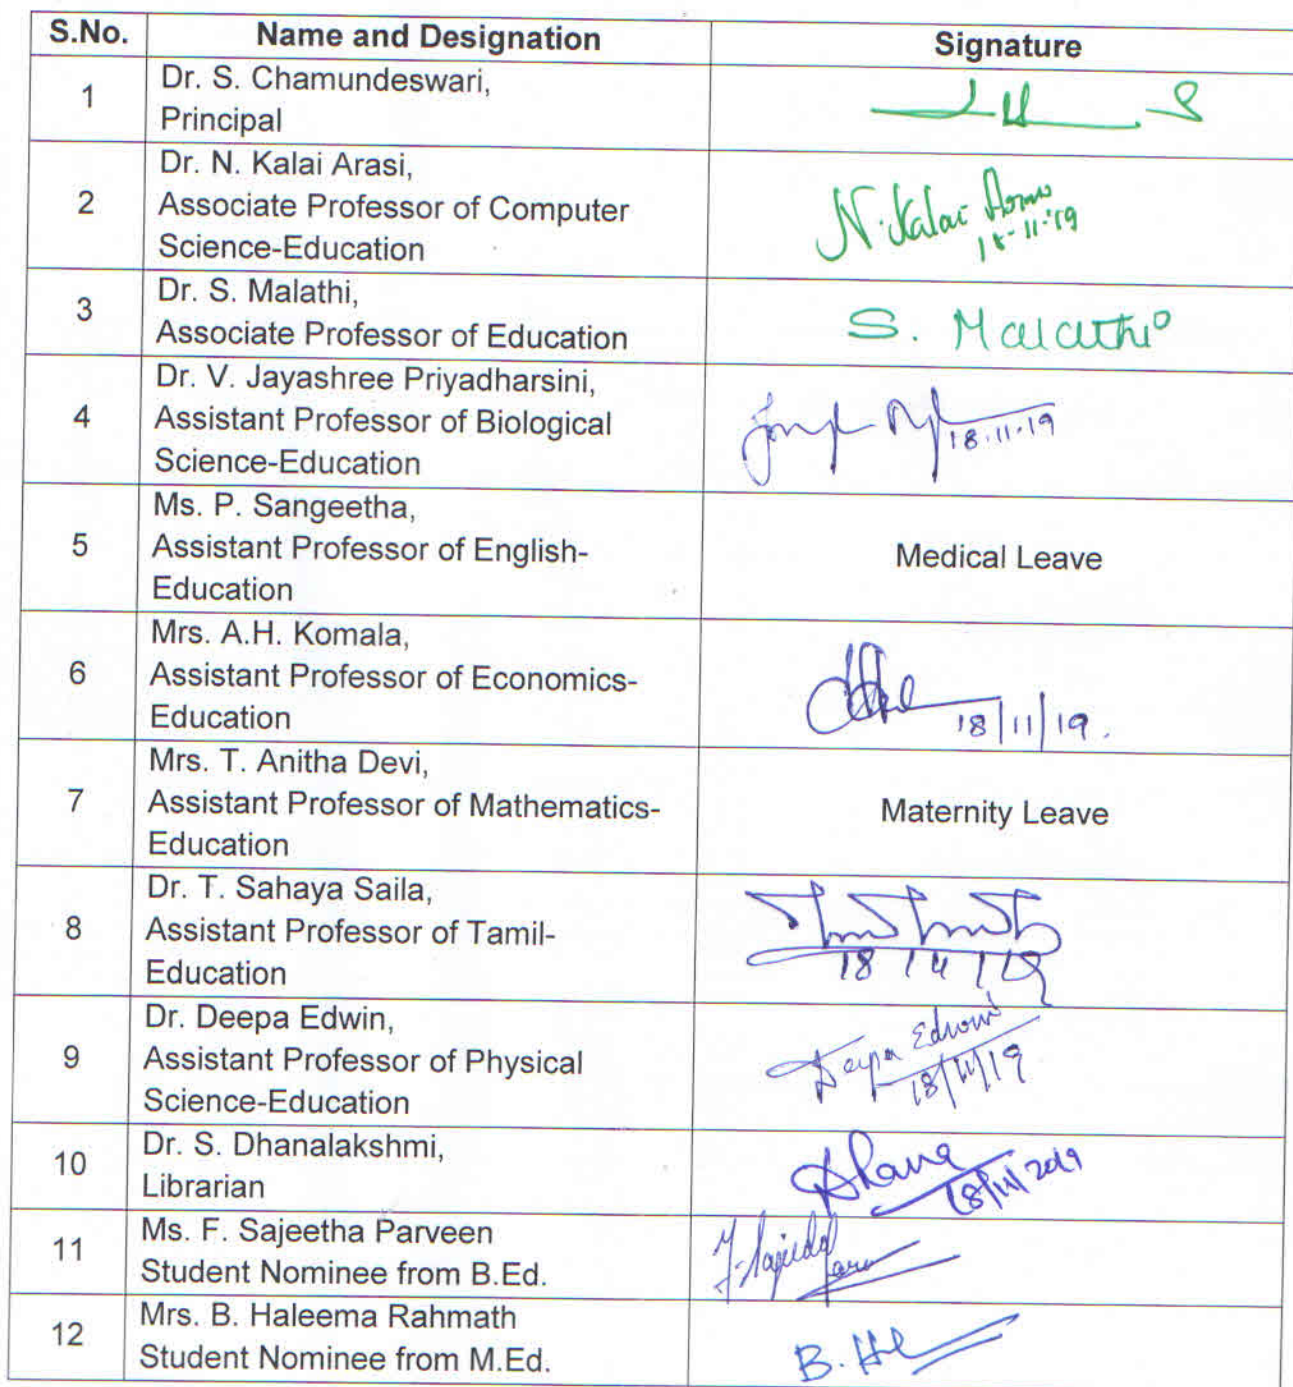 S.No. Name and Designation Signature
1
Dr. S. Chamundeswari,
Principal
2
Dr. N. Kalai Arasi,
Associate Professor of Computer
Science-Education
N. Kalai
18-11-'19
3
Dr. S. Malathi,
Associate Professor of Education
S. Malathi
4
Dr. V. Jayashree Priyadharsini,
Assistant Professor of Biological
Science-Education
18.11.19
5
Ms. P. Sangeetha,
Assistant Professor of English-
Education
Medical Leave
6
Mrs. A.H. Komala,
Assistant Professor of Economics-
Education
18/11/19.
7
Mrs. T. Anitha Devi,
Assistant Professor of Mathematics-
Education
Maternity Leave
8
Dr. T. Sahaya Saila,
Assistant Professor of Tamil-
Education
18/11/19
9
Dr. Deepa Edwin,
Assistant Professor of Physical
Science-Education
Deepa Edwin
18/11/19
10
Dr. S. Dhanalakshmi,
Librarian
Dhana
18/11/2019
11
Ms. F. Sajeetha Parveen
Student Nominee from B.Ed.
12
Mrs. B. Haleema Rahmath
Student Nominee from M.Ed.
B.